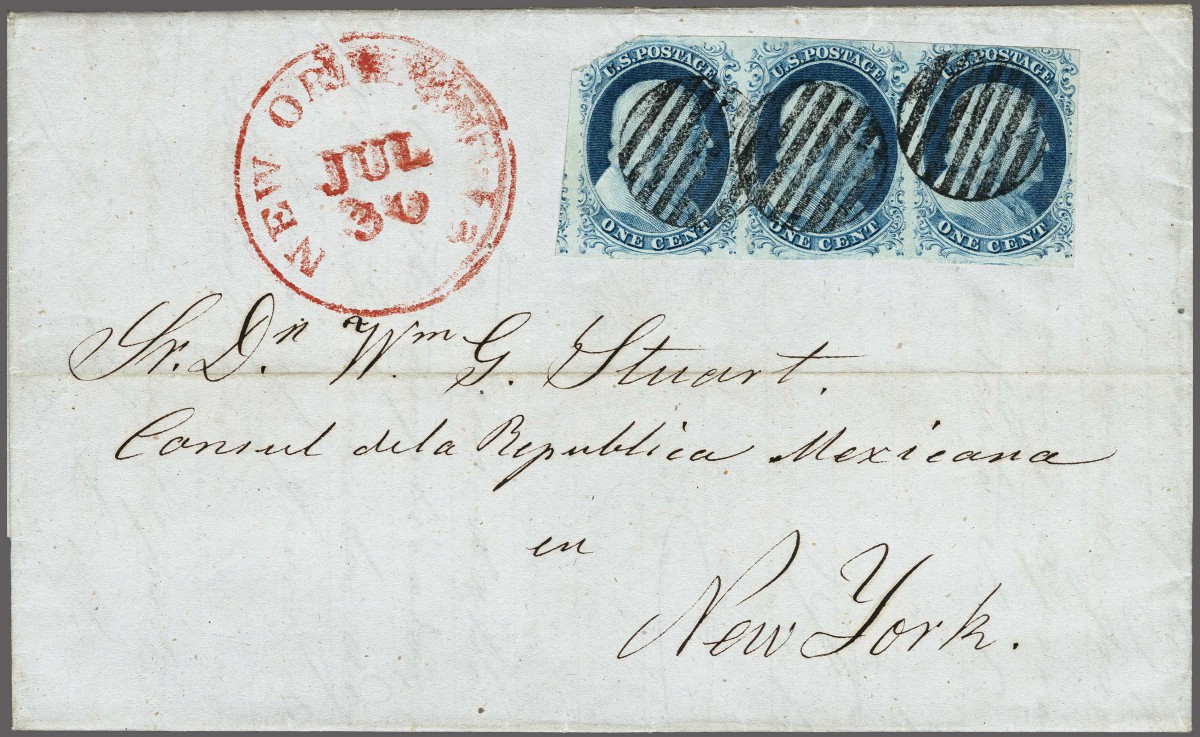 NEW ORLEANS
JUL
30
U.S. POSTAGE
ONE CENT
U.S. POSTAGE
ONE CENT
U.S. POSTAGE
ONE CENT
Sr. Dn Wm G. Stuart.
Consul de la Republica Mexicana
en
New York.